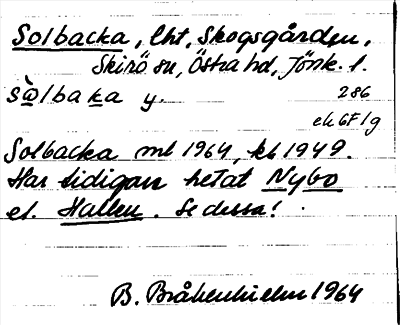 Solbacka, lht, Skogsgården,
Skirö sn, Östra hd, Jönk. l.
sòlbaka y. 286
ek 6F1g
Solbacka ml 1964, kb 1949.
Har tidigare hetat Nybo
el. Hallen. Se dessa!
B. Bråkenhielm 1964